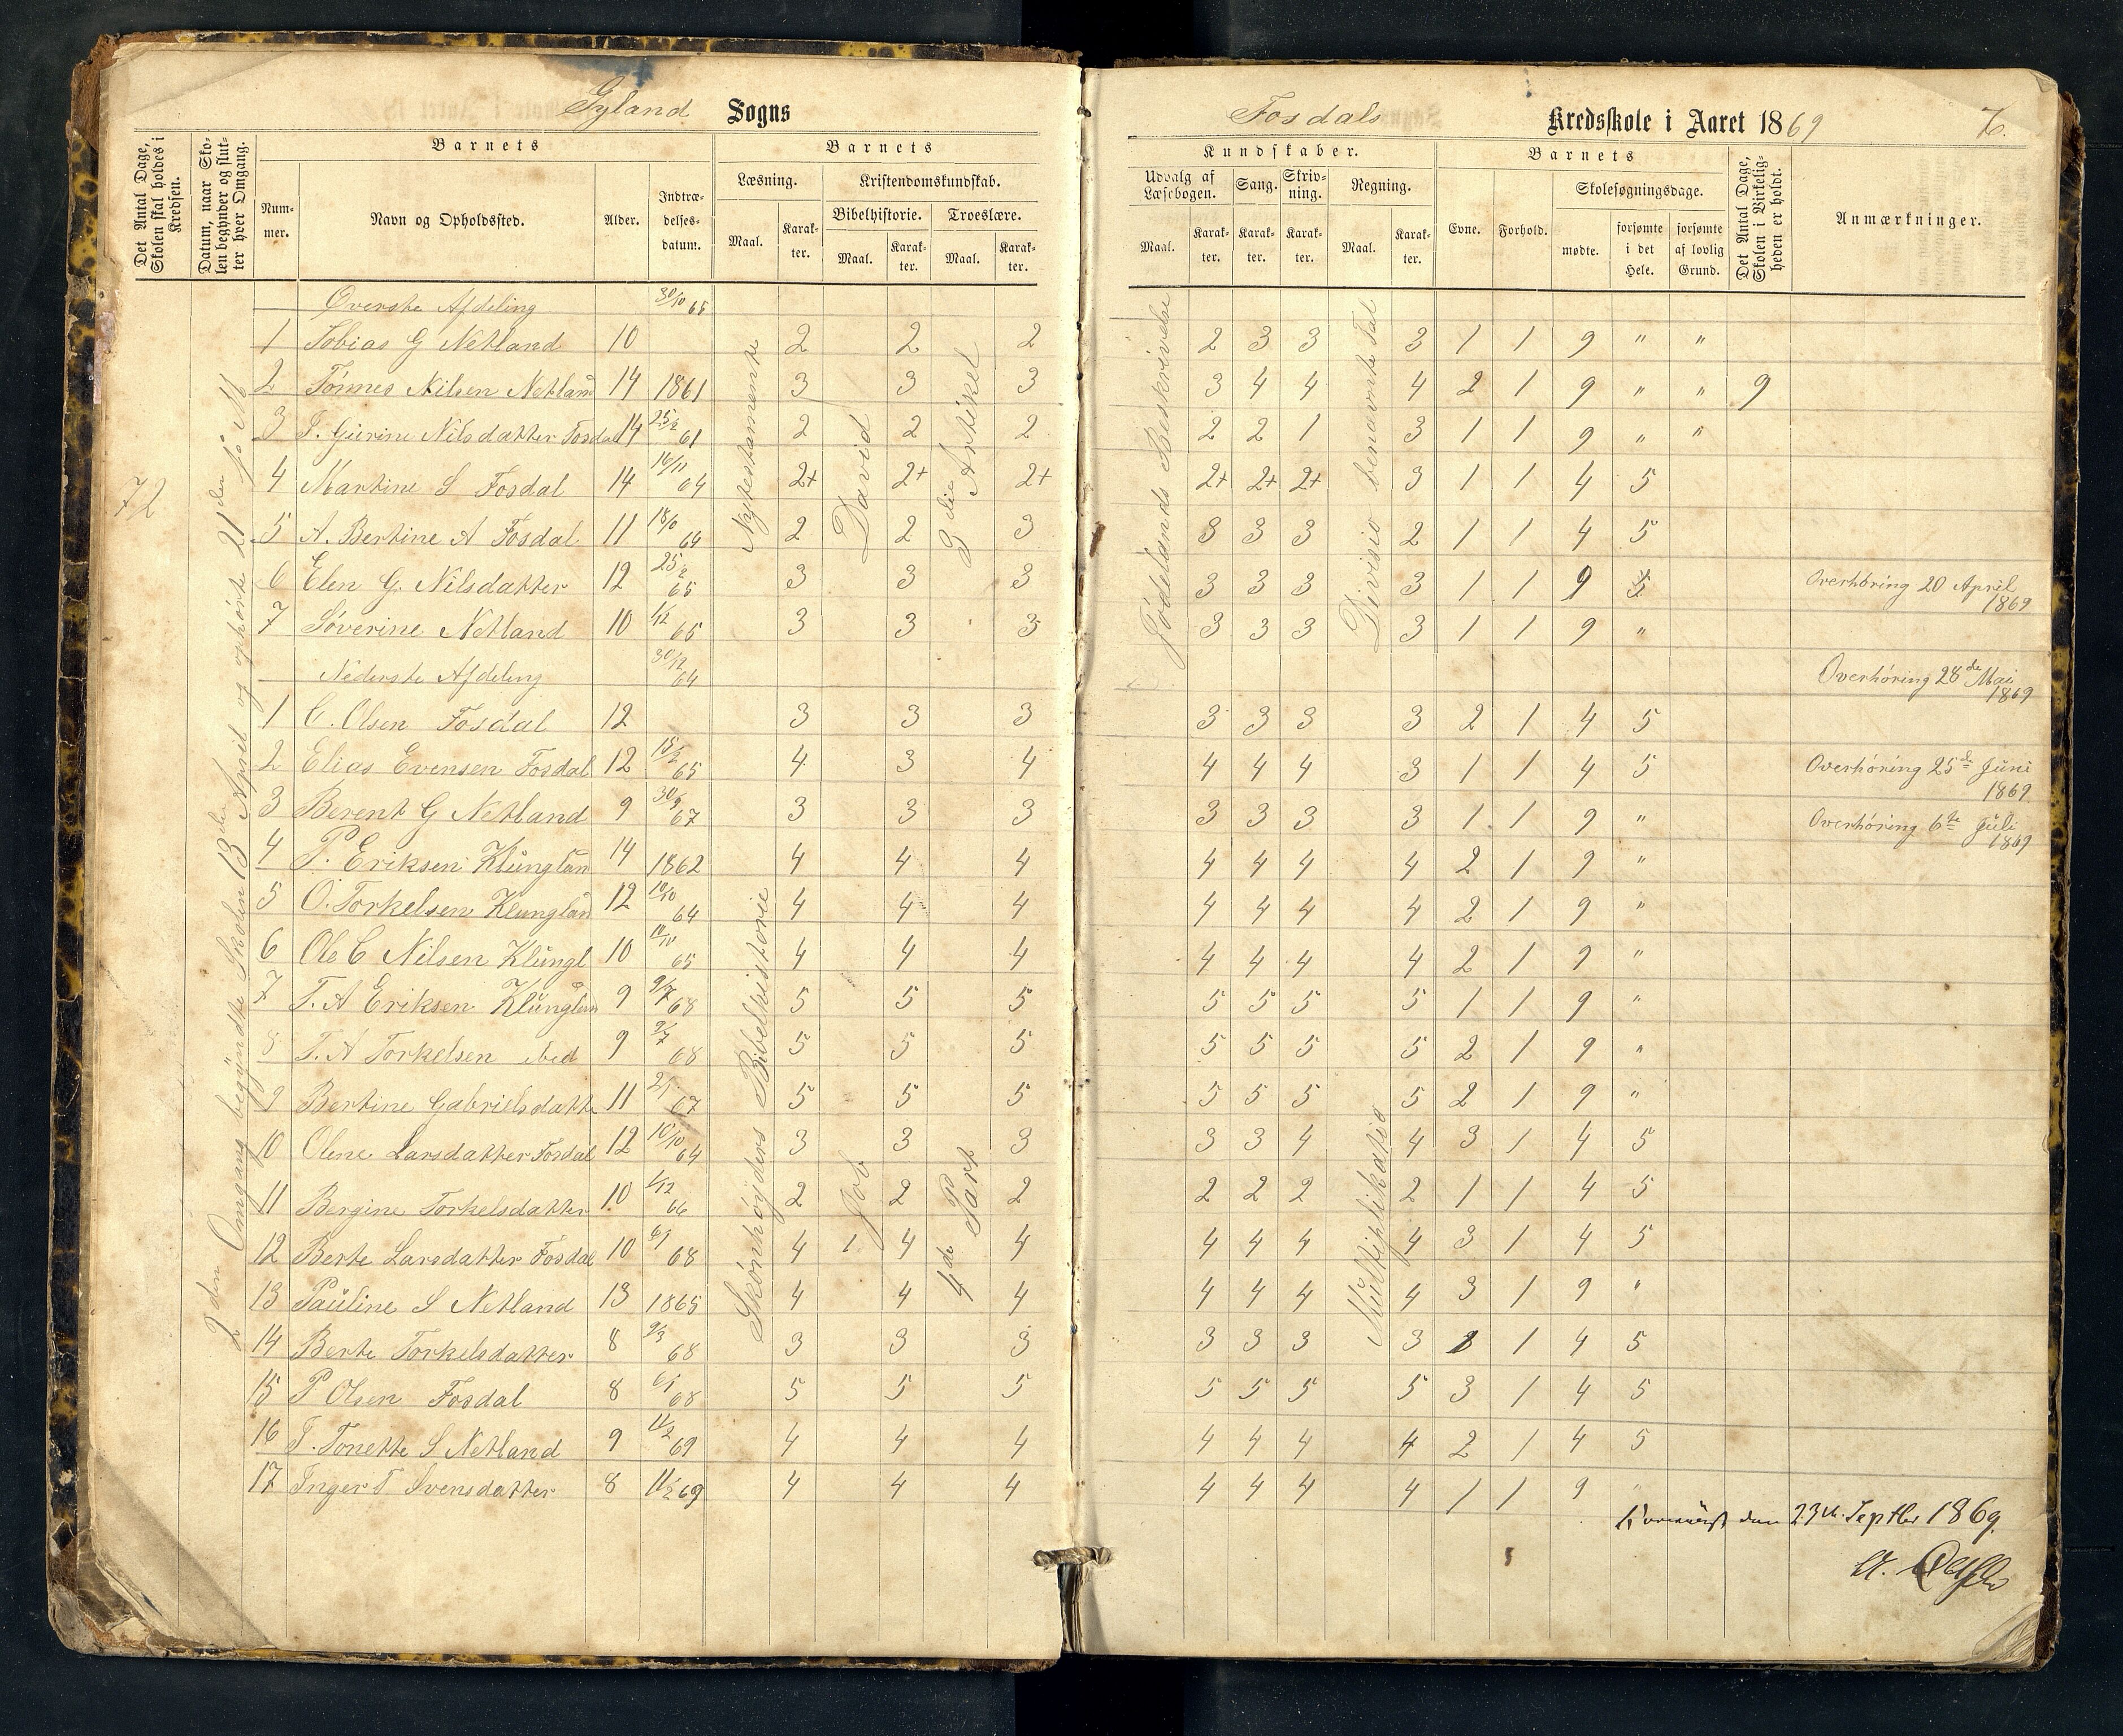 Gyland Sogns
Det Antal Dage, Skolen skal holdes i Kredsen.
Datum, naar Skolen begynder og slutter hver Omgang.
Barnets
Nummer.
Navn og Opholdssted.
Alder.
Indtrædelsesdatum.
Barnets
Læsning.
Maal.
Karakter.
Kristendomskundskab.
Bibelhistorie.
Maal.
Karakter.
Troeslære.
Maal.
Karakter.
72
2den Omgang begyndte Skolen 13de April og ophørte 21den
Øverste Afdeling 30/10 65
1 Tobias G Netland 10 2 2 2
2 Tønnes Nilsen Netland 14 1861 3 3 3
3 T. Gurine Nilsdatter Fosdal 14 25/2 61 2 2 2
4 Martine S Fosdal 14 16/11 64 2+ 2+ 2+
5 A. Bertine A Fosdal 11 18/10 64 2 2 3
6 Elen G. Nilsdatter 12 25/2 65 3 3 3
7 Søverine Netland 10 1/12 65 3 3 3
Nytestamente
David
3die Artikel
Nederste Afdeling 30/12 64
1 C. Olsen Fosdal 12 3 3 3
2 Elias Evensen Fosdal 12 15/2 65 4 3 4
3 Berent G Netland 9 30/9 67 3 3 3
4 P. Eriksen Klunglan 14 1862 4 4 4
5 O. Torkelsen Klunglan 12 10/10 64 4 4 4
6 Ole C Nilsen Klungl 10 10/10 65 4 4 4
7 T. A Eriksen Klunglan 9 9/7 68 5 5 5
8 T. A Torkelsen ibid 9 9/7 68 5 5 5
9 Bertine Gabrielsdatte 11 2/1 67 5 5 5
10 Olene Larsdatter Fosdal 12 10/10 64 3 3 3
11 Bergine Torkelsdatter 10 1/12 66 2 2 2
12 Berte Larsdatter Fosdal 10 6/1 68 4 4 4
13 Pauline S Netland 13 1865 4 4 4
14 Berte Torkelsdatter 8 9/3 68 3 3 3
15 P Olsen Fosdal 8 6/1 68 5 5 5
16 T. Tonette S Netland 9 11/2 69 4 4 4
17 Inger T Svensdatter 8 11/2 69 4 4 4
Skonhøyders Bibelhistorie
Job
4de Part
Fosdals Kredsskole i Aaret 1869 7.
Kundskaber.
Udvalg af Læsebogen.
Maal.
Karakter.
Sang.
Karakter.
Skrivning.
Karakter.
Regning.
Maal.
Karakter.
Barnets
Evne.
Forhold.
Skolesøgningsdage.
mødte.
forsømte i det Hele.
forsømte af lovlig Grund.
Det Antal Dage, Skolen i Virkeligheden er holdt.
Anmærkninger.
Jødelands Beskrivelse
Divisio benævnte Tal
2 3 3 3 1 1 9 " "
3 4 4 4 2 1 9 " " 9
2 2 1 3 1 1 9 " "
2+ 2+ 2+ 3 1 1 4 5
3 3 3 2 1 1 4 5
3 3 3 3 1 1 9 Overhøring 20 April 1869
3 3 3 3 1 1 9 "
Overhøring 28de Mai 1869
3 3 3 3 2 1 4 5
4 4 4 3 1 1 4 5 Overhøring 25de Juni 1869
3 3 3 3 1 1 9 " Overhøring 6te Juli 1869
4 4 4 4 2 1 9 "
4 4 4 4 2 1 9 "
4 4 4 4 2 1 9 "
5 5 5 5 1 1 9 "
5 5 5 5 2 1 9 "
5 5 5 5 2 1 9 "
3 3 4 4 3 1 4 5
2 2 2 2 1 1 4 5
4 4 4 4 3 1 4 5
4 4 4 4 3 1 9 "
3 3 3 3 1 4 5
5 5 5 5 3 1 4 5
4 4 4 4 2 1 4 5
4 4 4 4 1 1 9 "
Multiplikatio
den 23de Septbr 1869.